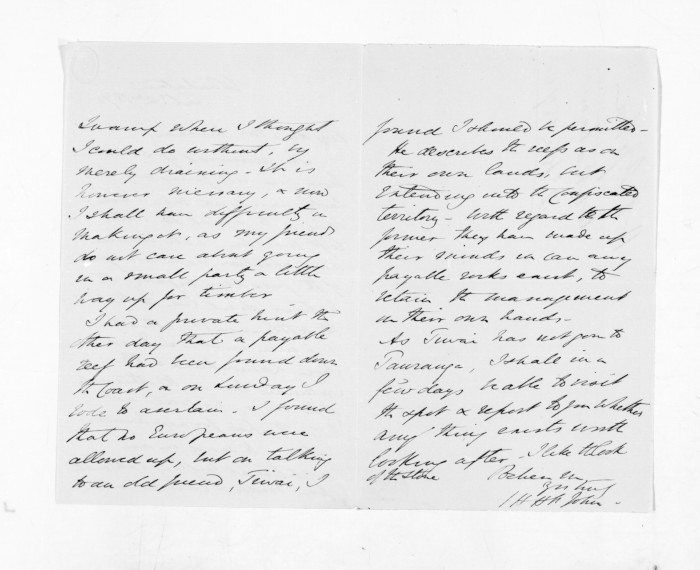 Swamp where I thought
I could do without, by
merely draining - It is
however necessary, & now
I shall have difficulty in
making it, as my friends
do not care about going
in a small party a little
way up for timber
I had a private hint the
other day that a payable
reef had been found down
the Coast, & on Sunday I
rode to ascertain. I found
that no Europeans were
allowed up, but on talking
to an old friend, Tiwai, I
found I should be permitted -
He describes the reef as on
their own lands, but
extending into the Confiscated
territory - With regard to the
former they have made up
their minds in case any
payable rocks exist, to
retain the management
in their own hands -
As Tiwai has not gone to
Tauranga, I shall in a
few days be able to visit
the spot & report to you whether
any thing exists worth
looking after. I like the look
of the stone
Believe me
yrs truly
J H H St John -